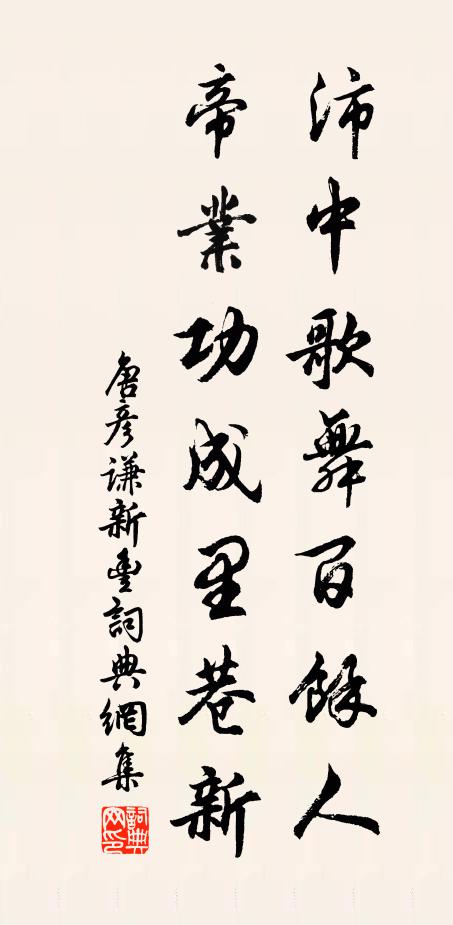 沛中歌舞百餘人
帝業功成里巷新
唐彥謙新豐詞典網集
詞典網印